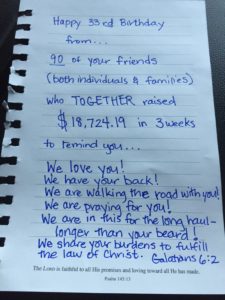 Happy 33rd Birthday
from...
90 of your friends
(both individuals & families)
who TOGETHER raised
$18,724.19 in 3 weeks
to remind you...
We love you!
We have your back!
We are walking the road with you!
We are praying for you!
We are in this for the long haul-
longer than your beard!
We share your burdens to fulfill
the law of Christ. Galatians 6:2
The LORD is faithful to all His promises and loving toward all He has made.
Psalm 145:13